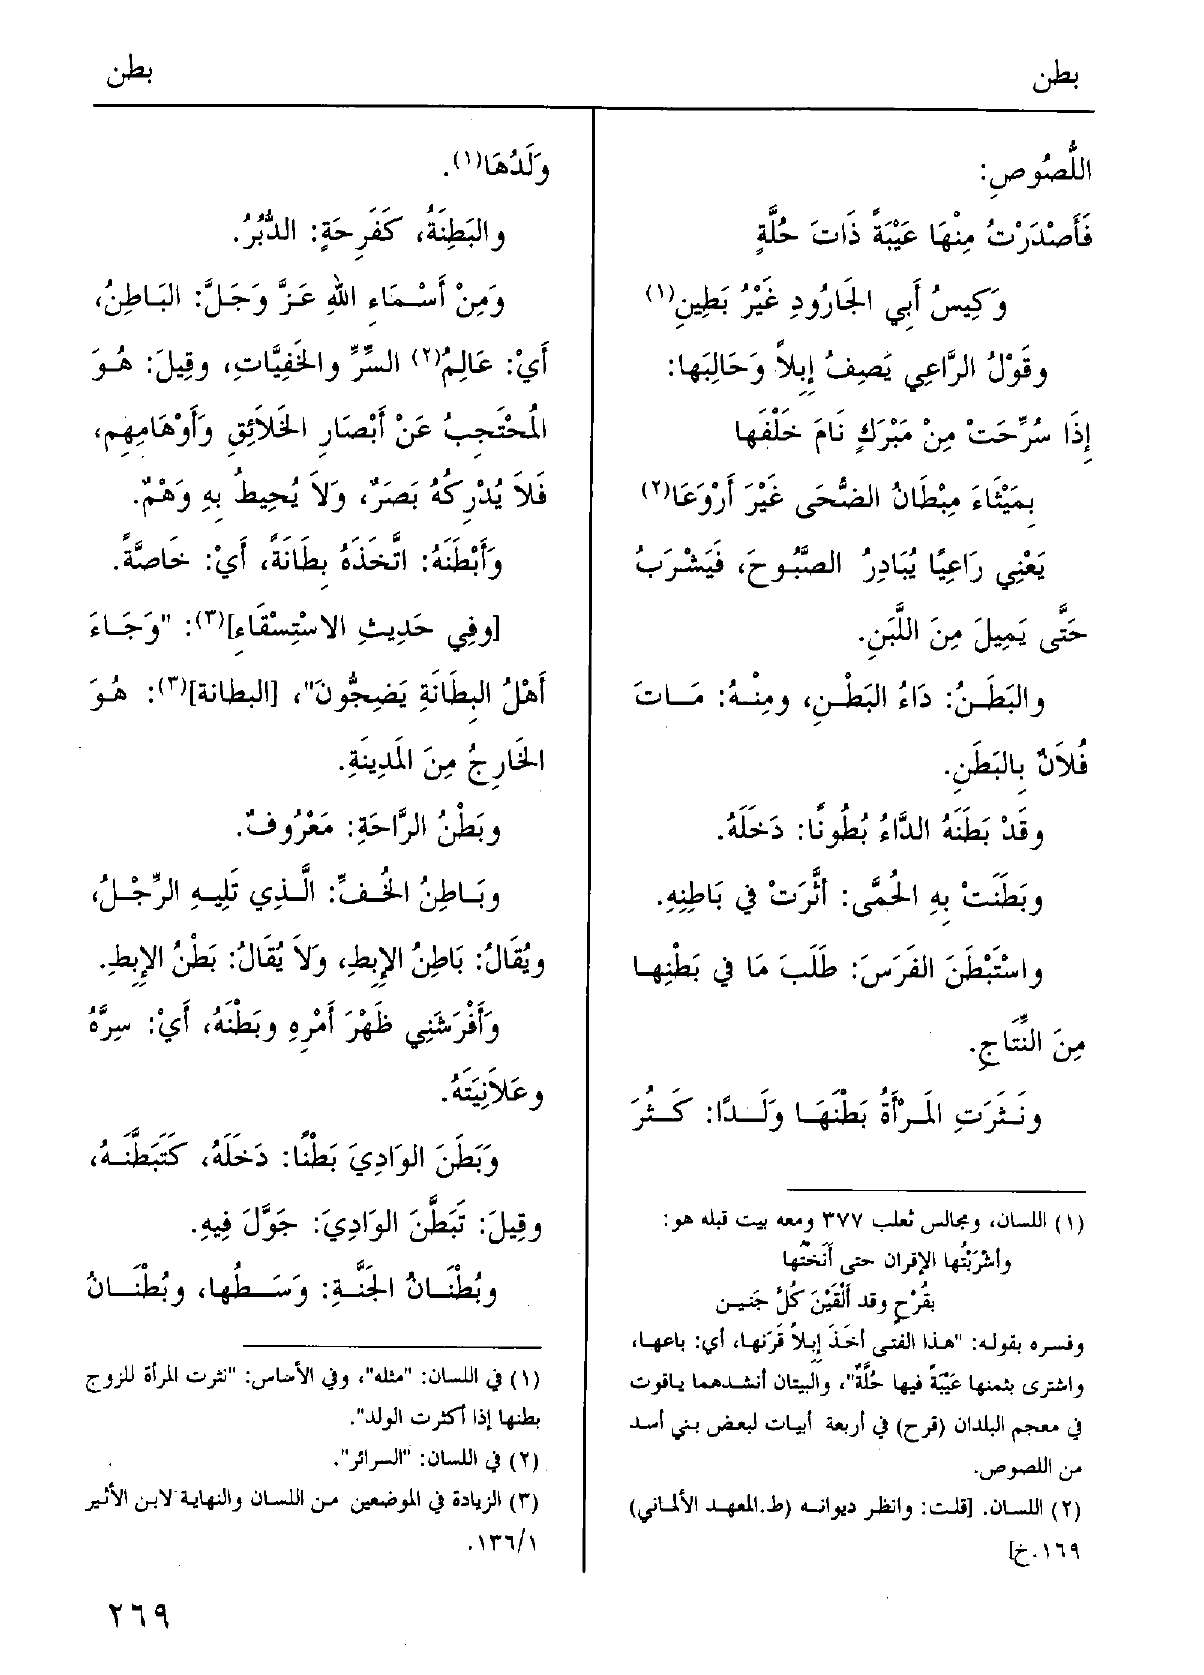 بطن
بطن
اللُّصُوصِ:
فَأَصْدَرْتُ مِنْهَا عَيْبَةً ذَاتَ حُلَّةٍ
وَكِيسُ أَبِي الجَارُودِ غَيْرُ بَطِينِ(١)
وقَوْلُ الرَّاعِي يَصِفُ إِبِلاً وَحَالِبَها:
إِذَا سُرِّحَتْ مِنْ مَبْرَكٍ نَامَ خَلْفَها
بِمَيْثَاءَ مِبْطَانُ الضُّحَى غَيْرَ أَرْوَعَا(٢)
يَعْنِي رَاعِيًا يُبَادِرُ الصَّبُوحَ، فَيَشْرَبُ
حَتَّى يَمِيلَ مِنَ اللَّبَنِ.
والبَطَنُ: دَاءُ البَطْنِ، ومِنْهُ: مَاتَ
فُلاَنٌ بِالبَطَنِ.
وقَدْ بَطَنَهُ الدَّاءُ بُطُونًا: دَخَلَهُ.
وبَطَنَتْ بِهِ الحُمَّى: أَثَّرَتْ في بَاطِنِهِ.
واسْتَبْطَنَ الفَرَسَ: طَلَبَ مَا في بَطْنِها
مِنَ النِّتَاجِ.
ونَثَرَتِ المَرْأَةُ بَطْنَهَا وَلَدًا: كَثُرَ
(١) اللسان، ومجالس ثعلب ٣٧٧ ومعه بيت قبله هو:
وأَشْرَبْتُها الإقران حتى أَنَخْتُها
بقُرْحٍ وقد أَلْقَيْنَ كُلَّ جَنين
وفسره بقوله: "هذا الفتى أَخَذَ إِبِلاً قَرَنَها، أي: باعها،
واشترى بثمنها عَيْبَةً فيها حُلَّةٌ"، والبيتان أنشدهما ياقوت
في معجم البلدان (قرح) في أربعة أبيات لبعض بني أسد
من اللصوص.
(٢) اللسان. [قلت: وانظر ديوانه (ط.المعهد الألماني)
١٦٩.خ]
وَلَدُهَا(١).
والبَطِنَةُ، كَفَرِحَةٍ: الدُّبُرُ.
وَمِنْ أَسْمَاءِ اللهِ عَزَّ وَجَلَّ: البَاطِنُ،
أَيْ: عَالِمُ(٢) السِّرِّ والخَفِيَّاتِ، وقِيلَ: هُوَ
المُحْتَجِبُ عَنْ أَبْصَارِ الخَلاَئِقِ وَأَوْهَامِهِم،
فَلاَ يُدْرِكُهُ بَصَرٌ، وَلاَ يُحِيطُ بِهِ وَهْمٌ.
وَأَبْطَنَهُ: اتَّخَذَهُ بِطَانَةً، أَيْ: خَاصَّةً.
[وفِي حَدِيثِ الاسْتِسْقَاءِ](٣): "وَجَاءَ
أَهْلُ البِطَانَةِ يَضِجُّونَ"، [البطانة](٣): هُوَ
الخَارِجُ مِنَ المَدِينَةِ.
وبَطْنُ الرَّاحَةِ: مَعْرُوفٌ.
وبَاطِنُ الخُفِّ: الَّذِي تَلِيهِ الرِّجْلُ،
ويُقَالُ: بَاطِنُ الإِبِطِ، وَلاَ يُقَالُ: بَطْنُ الإِبِطِ.
وَأَفْرَشَنِي ظَهْرَ أَمْرِهِ وبَطْنَهُ، أَيْ: سِرَّهُ
وعَلاَنِيَتَهُ.
وَبَطَنَ الوَادِيَ بَطْنًا: دَخَلَهُ، كَتَبَطَّنَهُ،
وقِيلَ: تَبَطَّنَ الوَادِيَ: جَوَّلَ فِيهِ.
وبُطْنَانُ الجَنَّةِ: وَسَطُها، وبُطْنَانُ
(١) في اللسان: "مثله"، وفي الأساس: "نثرت المرأة للزوج
بطنها إذا أكثرت الولد".
(٢) في اللسان: "السرائر".
(٣) الزيادة في الموضعين من اللسان والنهاية لابن الأثير
١٣٦/١.
٢٦٩